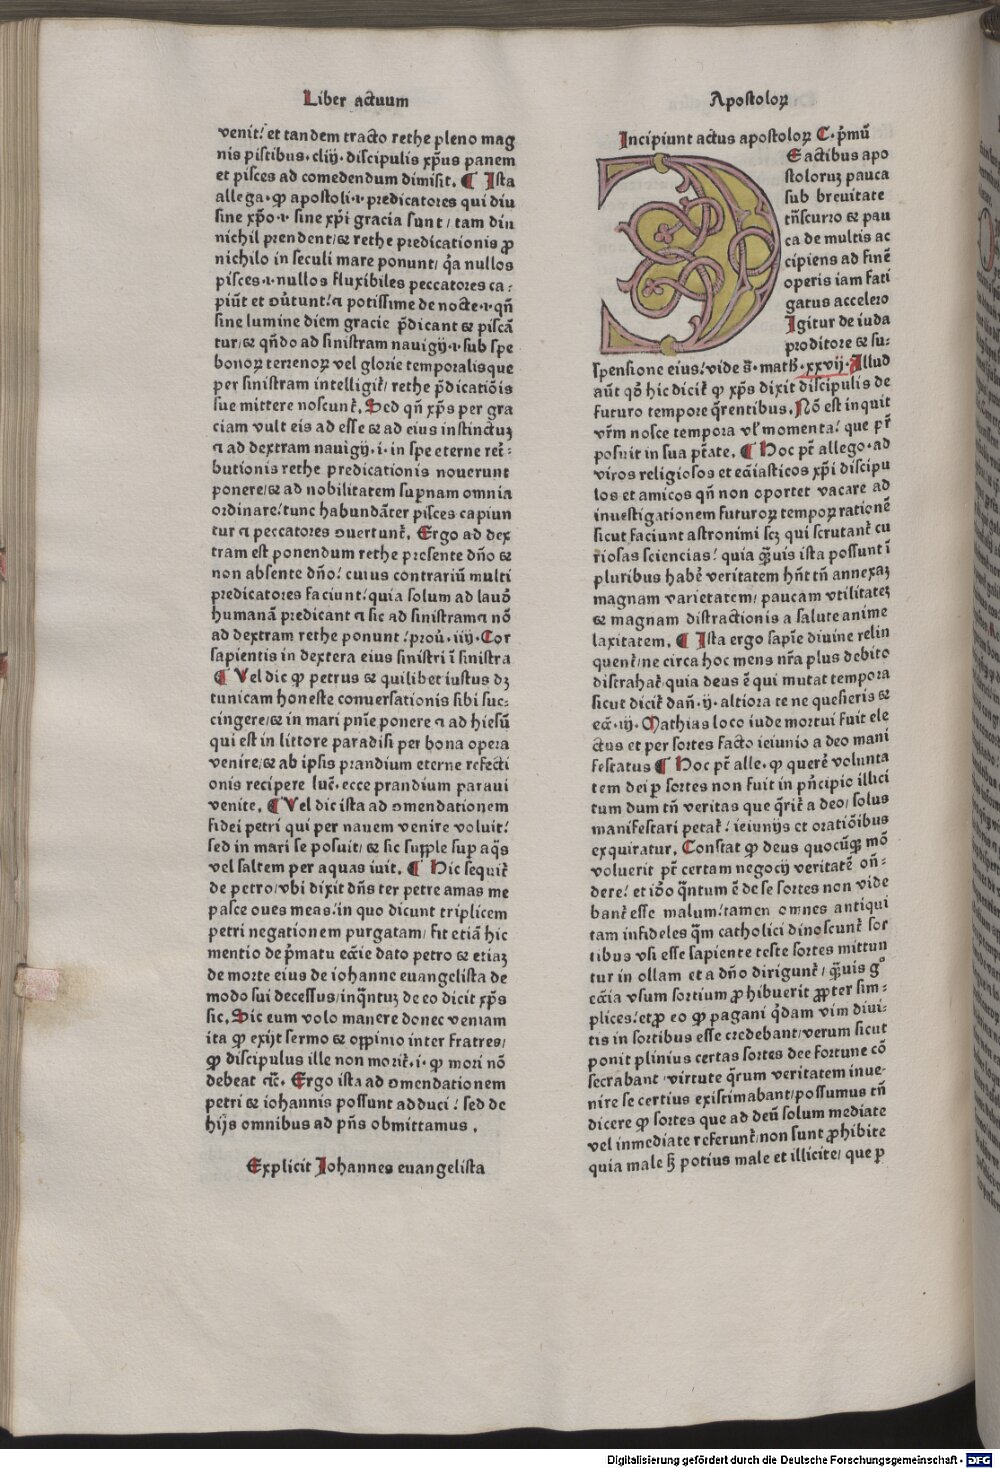 Liber actuum
venit! et tandem tracto rethe pleno mag
nis piscibus · cliij · discipulis xp̄us panem
et pisces ad comedendum dimisit. ¶ Ista
allega · ꝙ apostoli · i · predicatores qui diu
sine xp̄o · i · sine xp̄i gracia sunt / tam diu
nichil prendent / ⁊ rethe predicationis ꝓ
nichilo in seculi mare ponunt / q̄a nullos
pisces · i · nullos fluxibiles peccatores ca⸗
piūt et ↄūtunt! ⁊ potissime de nocte · i · qn̄
sine lumine diem gracie p̄dicant ⁊ piscā
tur / ⁊ qn̄do ad sinistram nauigij · i · sub spe
bonoꝝ terrenoꝝ vel glorie temporalisque
per sinistram intelligit᷑ / rethe p̄dicatiōis
sue mittere noscunt᷑. Sed qn̄ xp̄s per gra
ciam vult eis ad esse ⁊ ad eius instinctuꝫ
⁊ ad dextram nauigij · i · in spe eterne ret᷑⸗
butionis rethe predicationis nouerunt
ponere / ⁊ ad nobilitatem sup̄nam omnia
ordinare / tunc habundāter pisces capiun
tur ⁊ peccatores ↄuertunt᷑. Ergo ad dex
tram est ponendum rethe presente dn̄o ⁊
non absente dn̄o! cuius contrariū multi
predicatores faciunt! quia solum ad laudē
humanā predicant ⁊ sic ad sinistram ⁊ nō
ad dextram rethe ponunt! prou̇ · iiij · Cor
sapientis in dextera eius sinistri ī sinistra
¶ Vel dic ꝙ petrus ⁊ quilibet iustus dꝫ
tunicam honeste conuersationis sibi suc⸗
cingere / ⁊ in mari pn̄ie ponere ⁊ ad hiesū
qui est in littore paradisi per bona opera
venire / ⁊ ab ipsis prandium eterne refecti
onis recipere luc̄ · ecce prandium paraui
venite. ¶ Vel dic ista ad ↄmendationem
fidei petri qui per nauem venire voluit!
sed in mari se posuit / ⁊ sic supple sup̄ aq̄s
vel saltem per aquas iuit. ¶ Hic sequit᷑
de petro / vbi dixit dn̄s ter petre amas me
pasce oues meas! in quo dicunt triplicem
petri negationem purgatam / fit etiā hic
mentio de p̄matu ecc̄ie dato petro ⁊ etiaꝫ
de morte eius de iohanne euangelista de
modo sui decessus / inq̄ntuꝫ de eo dicit xp̄s
sic. Sic eum volo manere donec veniam
ita ꝙ exijt sermo ⁊ oppinio inter fratres /
ꝙ discipulus ille non morit᷑ · i · ꝙ mori nō
debeat ⁊c̄. Ergo ista ad ↄmendationem
petri ⁊ iohannis possunt adduci! sed de
hijs omnibus ad pn̄s obmittamus.
Explicit Johannes euangelista
Apostoloꝝ
Incipiunt actus apostoloꝝ C · p̄mū
DE actibus apo
stoloruꝫ pauca
sub breuitate
tn̄scurro ⁊ pau
ca de multis ac
cipiens ad finē
operis iam fati
gatus accelero
Igitur de iuda
proditore ⁊ su⸗
spensione eius! vide s̄ · math̄ · xxvij · Illud
aūt qd̄ hic dicit᷑ ꝙ xp̄s dixit discipulis de
futuro tempore q̄rentibus. Nō est inquit
vr̄m nosce tempora vl᷑ momenta! que pr̄
posuit in sua pt̄ate. ¶ Hoc pt̄ allego · ad
viros religiosos et ecc̄iasticos xp̄i discipu
los et amicos qn̄ non oportet vacare ad
inuestigationem futuroꝝ tempoꝝ rationē
sicut faciunt astronimi scꝫ qui scrutant᷑ cu
riosas sciencias! quia q̄uis ista possunt ī
pluribus habe᷑ veritatem hn̄t tn̄ annexaꝫ
magnam varietatem / paucam vtilitateꝫ
⁊ magnam distractionis a salute anime
laxitatem. ¶ Ista ergo sapīe diuine relin
quent᷑ / ne circa hoc mens nr̄a plus debito
distrahat᷑ quia deus ē qui mutat tempora
sicut dicit᷑ dan̄ · ij · altiora te ne quesieris ⁊
ec̄c · iij · Mathias loco iude mortui fuit ele
ctus et per sortes facto ieiunio a deo mani
festatus ¶ Hoc pt̄ alle · ꝙ quere᷑ volunta
tem dei p̱ sortes non fuit in pn̄cipio illici
tum dum tn̄ veritas que q̄rit᷑ a deo / solus
manifestari petat᷑! ieiunijs et oratiōibus
exquiratur. Constat ꝙ deus quocūqꝫ mō
voluerit pt̄ certam negocij veritatē on̄⸗
dere! et iō q̄ntum ē de se sortes non vide
bant᷑ esse malum! tamen omnes antiqui
tam infideles q̄m catholici dinoscunt᷑ sor
tibus vsi esse sapiente teste sortes mittun
tur in ollam et a dn̄o dirigunt᷑ / q̄uis gͦ
ecc̄ia vsum sortium ꝓhibuerit ꝓpter sim⸗
plices! et ꝓ eo ꝙ pagani q̄dam vim diui⸗
tis in sortibus esse credebant / verum sicut
ponit plinius certas sortes dee fortune cō
secrabant / virtute q̄rum veritatem inue⸗
nire se certius existimabant / possumus tn̄
dicere ꝙ sortes que ad deū solum mediate
vel inmediate referunt᷑ / non sunt ꝓhibite
quia male sꝫ potius male et illicite / que p̱
Digitalisierung gefördert durch die Deutsche Forschungsgemeinschaft - DFG